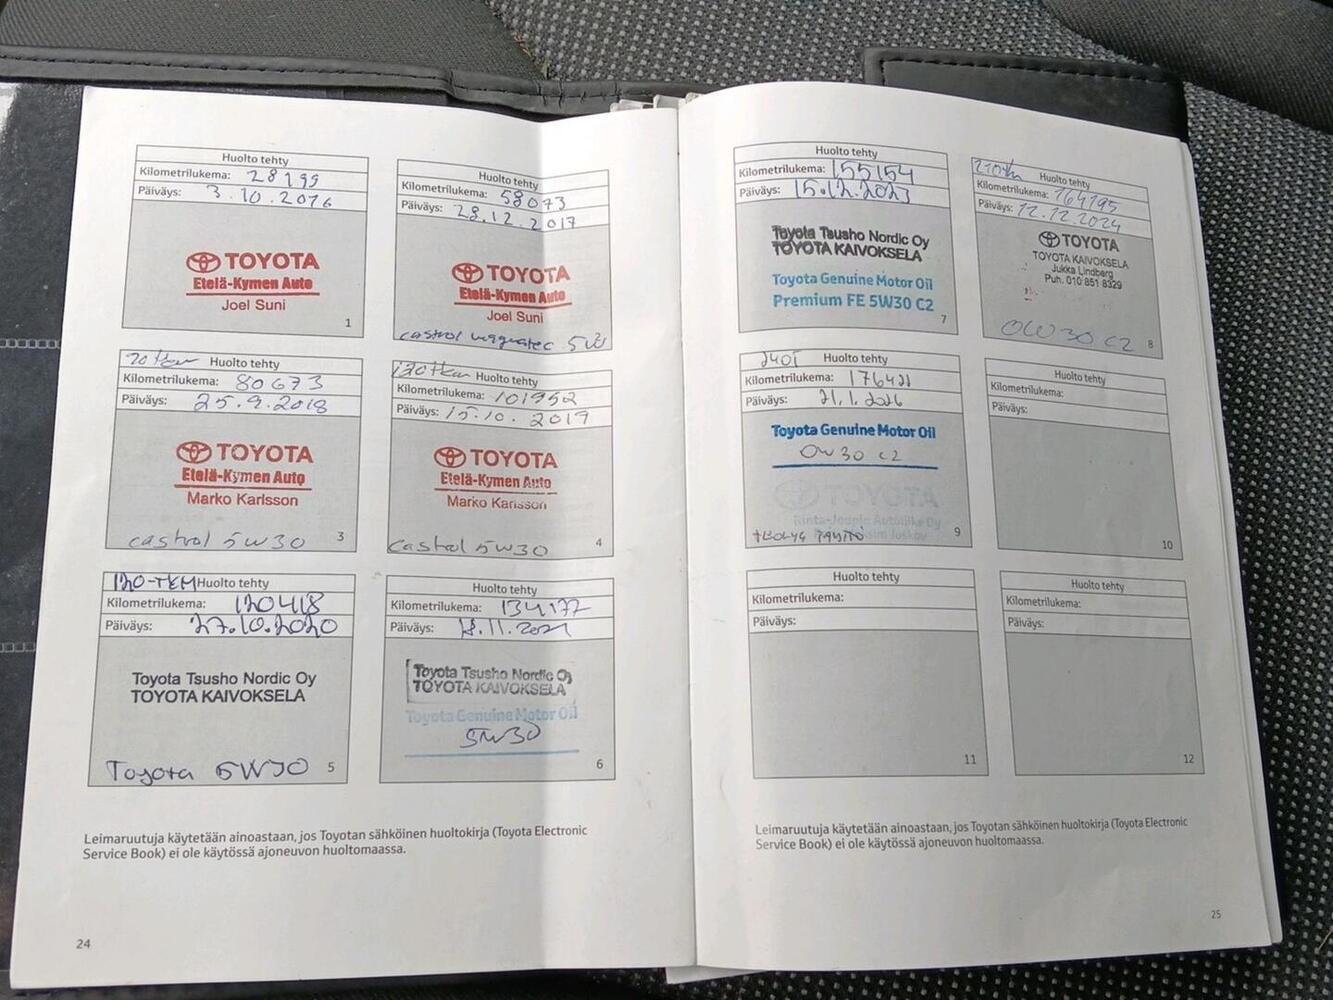 Huolto tehty
Kilometrilukema: 28199
Päiväys: 3.10.2016
TOYOTA
Etelä-Kymen Auto
Joel Suni
1
Huolto tehty
Kilometrilukema: 58073
Päiväys: 28.12.2017
TOYOTA
Etelä-Kymen Auto
Joel Suni
castrol magnatec 5W
Huolto tehty
Kilometrilukema: 80673
Päiväys: 25.9.2018
TOYOTA
Etelä-Kymen Auto
Marko Karlsson
castrol 5W30
3
Huolto tehty
Kilometrilukema: 101952
Päiväys: 15.10.2019
TOYOTA
Etelä-Kymen Auto
Marko Karlsson
Castrol 5W30
4
120-TKM Huolto tehty
Kilometrilukema: 120418
Päiväys: 27.10.2020
Toyota Tsusho Nordic Oy
TOYOTA KAIVOKSELA
Toyota 5W30
5
Huolto tehty
Kilometrilukema: 134177
Päiväys: 11.2021
Toyota Tsusho Nordic Oy
TOYOTA KAIVOKSELA
Toyota Genuine Motor Oil
5W30
6
Leimaruutuja käytetään ainoastaan, jos Toyotan sähköinen huoltokirja (Toyota Electronic
Service Book) ei ole käytössä ajoneuvon huoltomaassa.
24
Huolto tehty
Kilometrilukema: 155154
Päiväys: 15.12.2023
Toyota Tsusho Nordic Oy
TOYOTA KAIVOKSELA
Toyota Genuine Motor Oil
Premium FE 5W30 C2
7
210tkm Huolto tehty
Kilometrilukema: 164195
Päiväys: 12.12.2024
TOYOTA
TOYOTA KAIVOKSELA
Jukka Lindberg
Puh. 010 851 8329
0W30 C2
8
240T Huolto tehty
Kilometrilukema: 176421
Päiväys: 21.1.2026
Toyota Genuine Motor Oil
0W30 C2
TOYOTA
Rinta-Joupin Autoliike Oy
9
Huolto tehty
Kilometrilukema:
Päiväys:
10
Huolto tehty
Kilometrilukema:
Päiväys:
11
Huolto tehty
Kilometrilukema:
Päiväys:
12
Leimaruutuja käytetään ainoastaan, jos Toyotan sähköinen huoltokirja (Toyota Electronic
Service Book) ei ole käytössä ajoneuvon huoltomaassa.
25